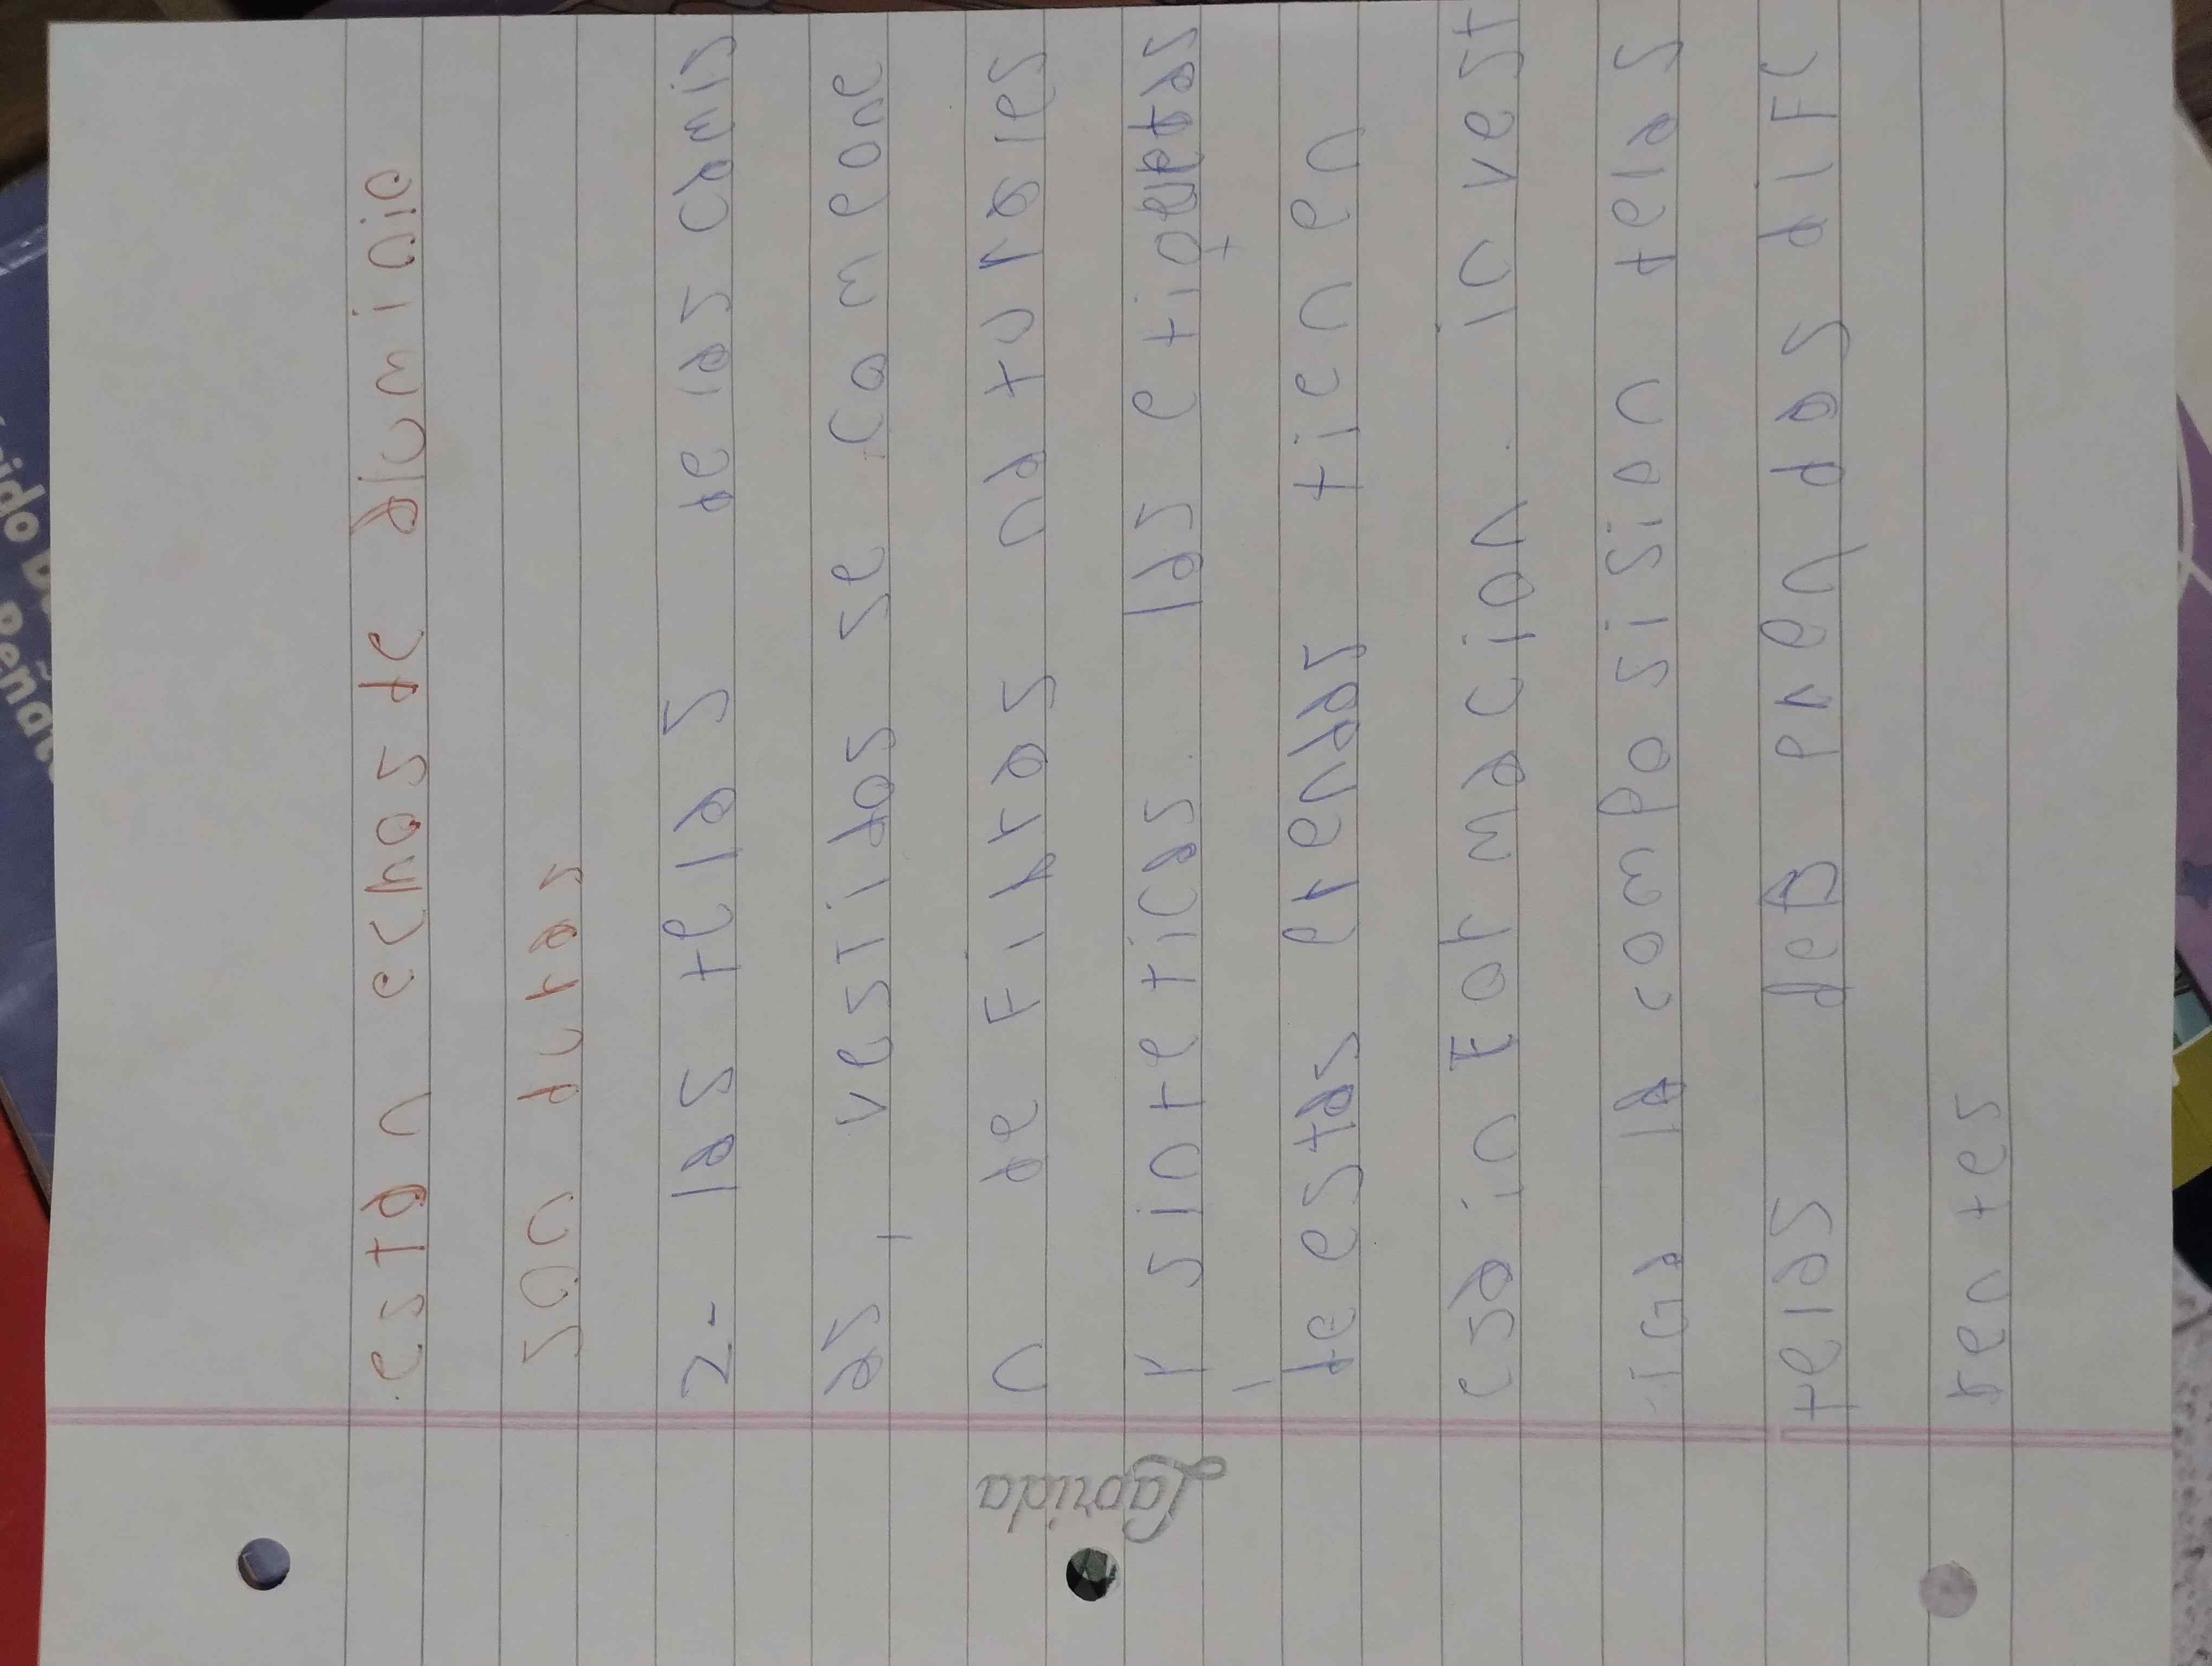 estan echos de aluminio
son duras
2- las telas de las camis
as, vestidos se compone
n de Fibras naturales
y sinteticas. las etiquetas
de estas prendas tienen
esa in Formacion. invest
iga la composision telas
telas de prendas diFe
rentes
Laprida